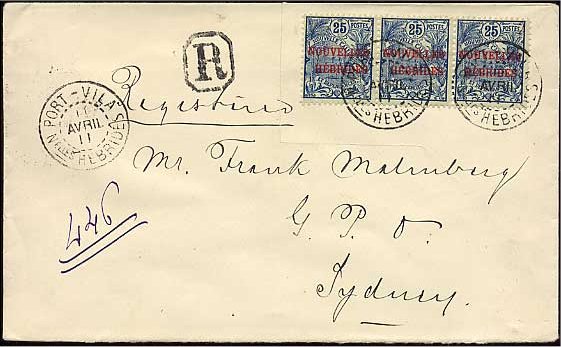 25 POSTES 25 POSTES 25 POSTES
NOUVELLES NOUVELLES NOUVELLES
HÉBRIDES HÉBRIDES HÉBRIDES
R
PORT-VILA
11
AVRIL
11
NLLES HEBRIDES
AVRIL
HEBRIDES
AVRIL
HEBRIDES
Registered
Mr. Frank Malmberg
G. P. O.
Sydney.
446